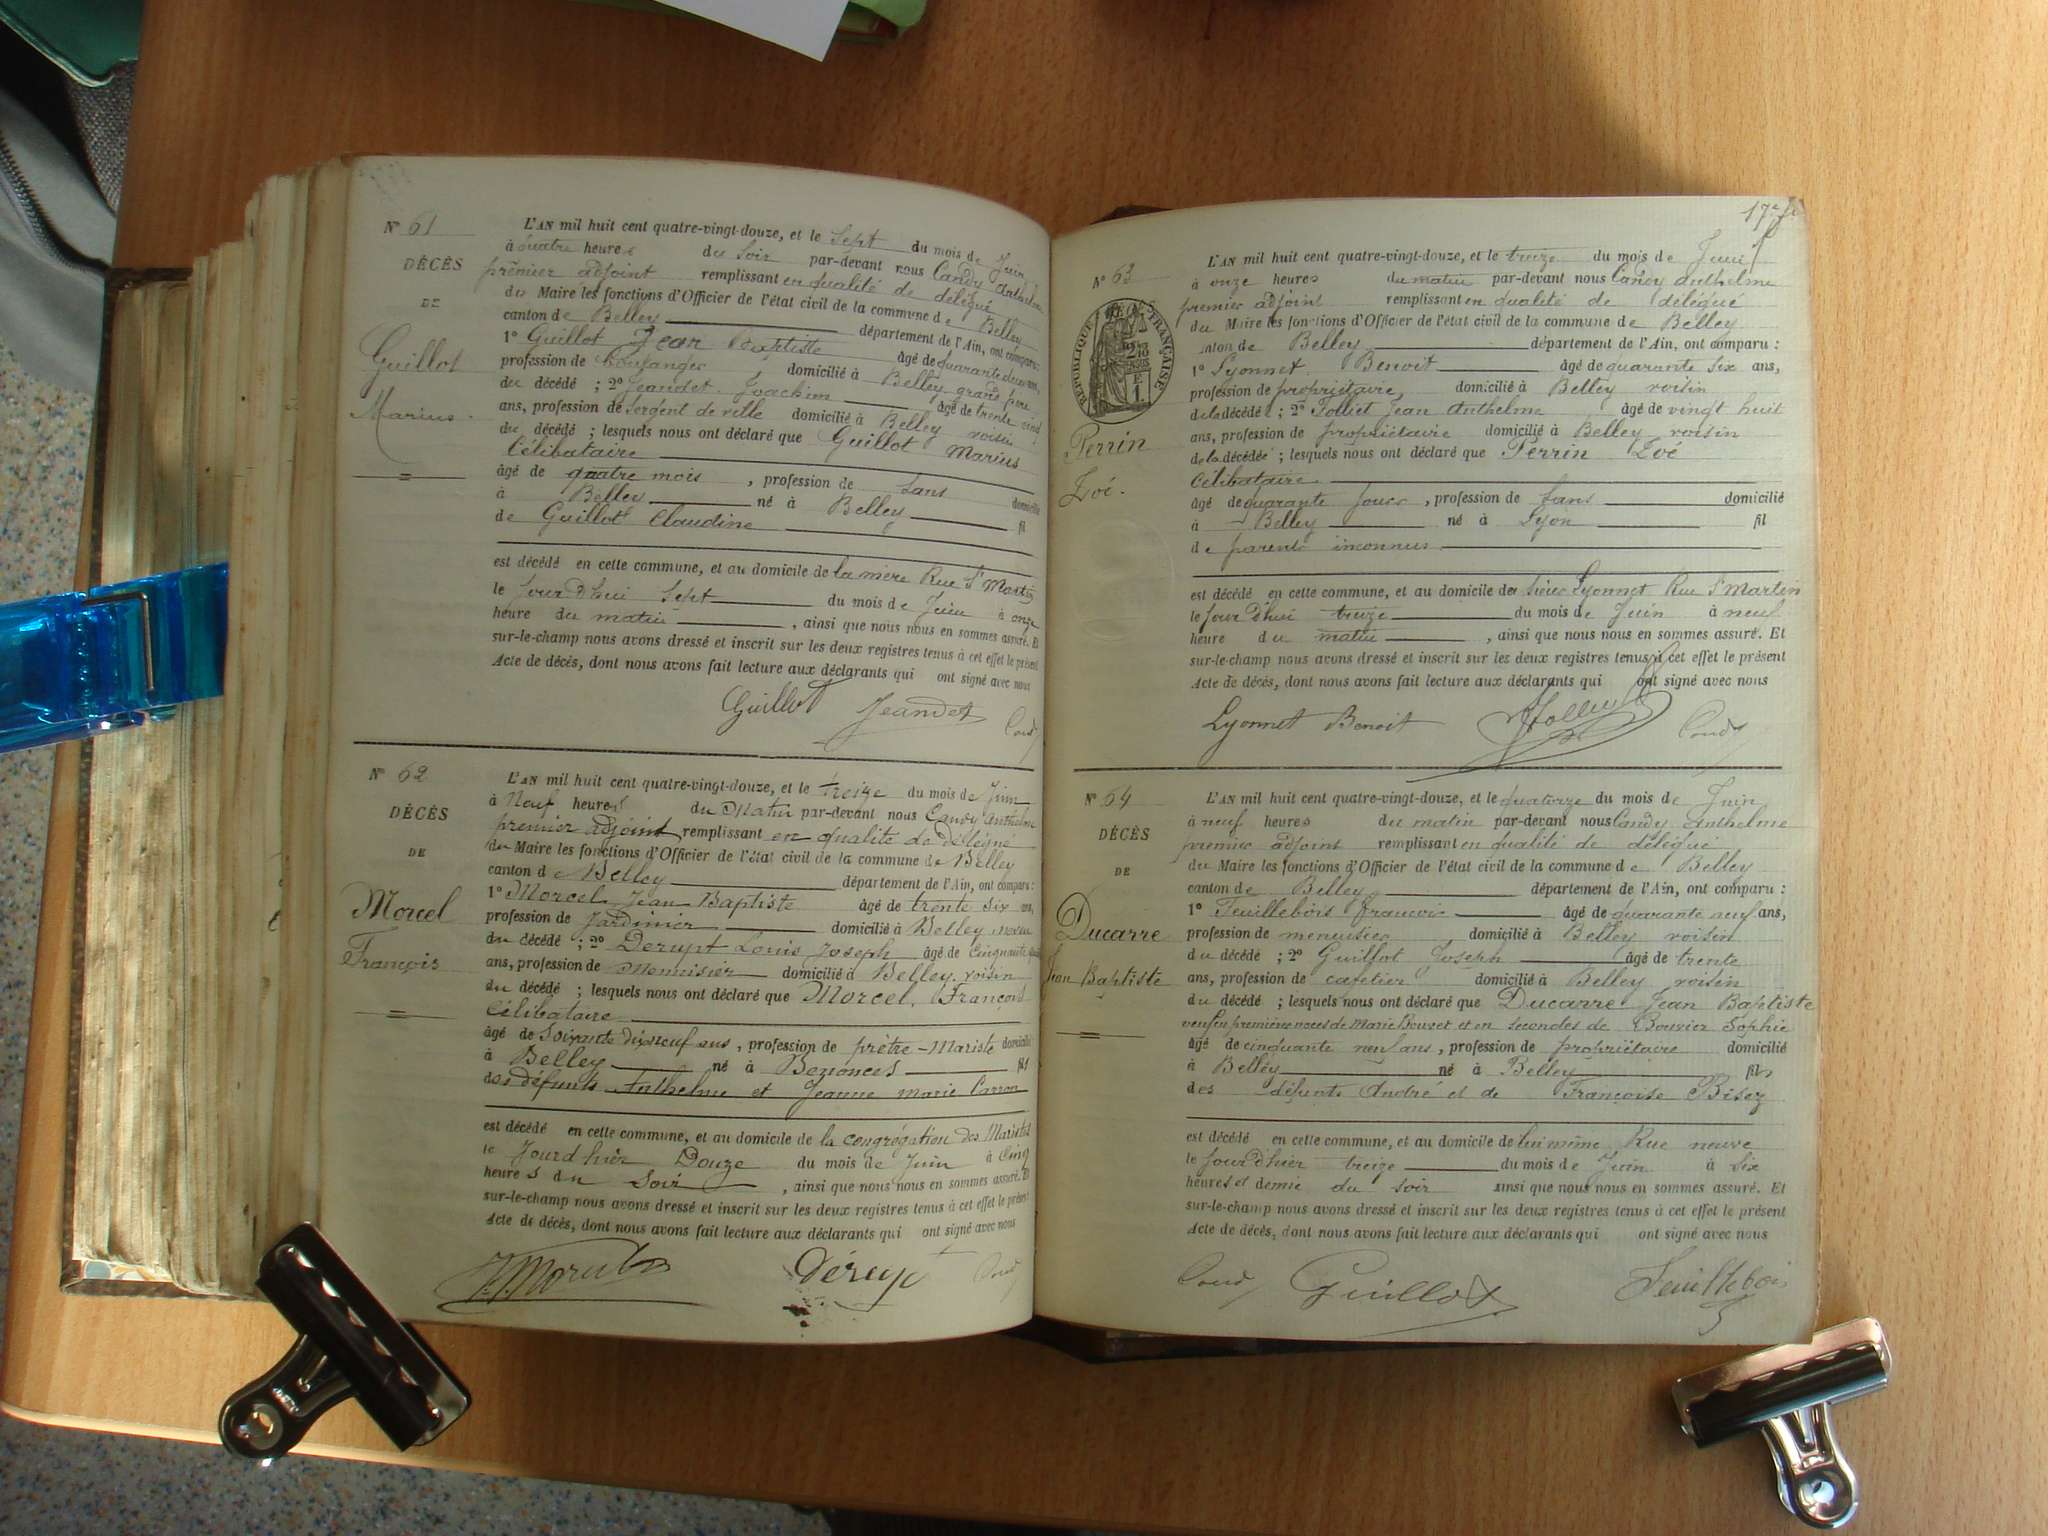 N° 61
DÉCÈS
DE
Guillot
Marius.
L'AN mil huit cent quatre-vingt-douze, et le Sept du mois de Juin
à quatre heures du Soir par-devant nous Candy Anthelme
premier adjoint remplissant en qualité de délégué
du Maire les fonctions d'Officier de l'état civil de la commune de Belley
canton de Belley département de l'Ain, ont comparu:
1° Guillot Jean Baptiste âgé de quarante deux ans,
profession de boulanger domicilié à Belley grand père
du décédé ; 2° Jeandet Joachim âgé de trente
ans, profession de Sergent de ville domicilié à Belley voisin
du décédé ; lesquels nous ont déclaré que Guillot Marius
Célibataire
âgé de quatre mois , profession de Sans domicilié
à Belley né à Belley fil
de Guillot Claudine
est décédé en cette commune, et au domicile de la mère Rue St Martin
le Jour d'hui Sept du mois de Juin à onze
heure du matin , ainsi que nous nous en sommes assuré. Et
sur-le-champ nous avons dressé et inscrit sur les deux registres tenus à cet effet le présent
Acte de décès, dont nous avons fait lecture aux déclarants qui ont signé avec nous
Guillot Jeandet Candy
N° 62
DÉCÈS
DE
Morcel
François
L'AN mil huit cent quatre-vingt-douze, et le treize du mois de Juin
à Neuf heures du Matin par-devant nous Candy Anthelme
premier adjoint remplissant en qualité de délégué
du Maire les fonctions d'Officier de l'état civil de la commune de Belley
canton de Belley département de l'Ain, ont comparu:
1° Morcel Jean Baptiste âgé de trente six ans,
profession de Jardinier domicilié à Belley neveu
du décédé ; 2° Derupt Louis Joseph âgé de cinquante
ans, profession de Menuisier domicilié à Belley voisin
du décédé ; lesquels nous ont déclaré que Morcel, François
Célibataire
âgé de Soixante dix neuf ans , profession de prêtre-Mariste domicilié
à Belley né à Benonces fils
des défunts Anthelme et Jeanne Marie Carron
est décédé en cette commune, et au domicile de la congrégation des Maristes
le Jour d'hier Douze du mois de Juin à Cinq
heures du Soir , ainsi que nous nous en sommes assuré. Et
sur-le-champ nous avons dressé et inscrit sur les deux registres tenus à cet effet le présent
Acte de décès, dont nous avons fait lecture aux déclarants qui ont signé avec nous
Dérupt Candy
17e
N° 63
RÉPUBLIQUE FRANÇAISE
Perrin
Zoé.
L'AN mil huit cent quatre-vingt-douze, et le treize du mois de Juin
à onze heures du matin par-devant nous Candy Anthelme
premier adjoint remplissant en qualité de délégué
du Maire les fonctions d'Officier de l'état civil de la commune de Belley
canton de Belley département de l'Ain, ont comparu :
1° Lyonnet, Benoit âgé de quarante six ans,
profession de propriétaire, domicilié à Belley voisin
de la décédée ; 2° Folliet Jean Anthelme âgé de vingt huit
ans, profession de propriétaire domicilié à Belley voisin
de la décédée ; lesquels nous ont déclaré que Perrin Zoé
Célibataire
âgé de quarante jours , profession de Sans domicilié
à Belley né à Lyon fil
de parents inconnus
est décédé en cette commune, et au domicile de sieur Lyonnet Rue St Martin
le Jour d'hui treize du mois de Juin à neuf
heure du matin , ainsi que nous nous en sommes assuré. Et
sur-le-champ nous avons dressé et inscrit sur les deux registres tenus à cet effet le présent
Acte de décès, dont nous avons fait lecture aux déclarants qui ont signé avec nous
Lyonnet Benoit Folliet Candy
N° 64
DÉCÈS
DE
Ducarre
Jean Baptiste
L'AN mil huit cent quatre-vingt-douze, et le quatorze du mois de Juin
à neuf heures du matin par-devant nous Candy Anthelme
premier adjoint remplissant en qualité de délégué
du Maire les fonctions d'Officier de l'état civil de la commune de Belley
canton de Belley département de l'Ain, ont comparu :
1° Feuillebois François âgé de quarante neuf ans,
profession de menuisier domicilié à Belley voisin
du décédé ; 2° Guillot Joseph âgé de trente
ans, profession de cafetier domicilié à Belley voisin
du décédé ; lesquels nous ont déclaré que Ducarre Jean Baptiste
veuf en première noces de Marie Bouvet et en secondes de Bouvier Sophie
âgé de cinquante neuf ans , profession de propriétaire domicilié
à Belley né à Belley fils
des défunts André et de Françoise Bisez
est décédé en cette commune, et au domicile de lui même Rue neuve
le Jour d'hier treize du mois de Juin à six
heures et demie du soir ainsi que nous nous en sommes assuré. Et
sur-le-champ nous avons dressé et inscrit sur les deux registres tenus à cet effet le présent
Acte de décès, dont nous avons fait lecture aux déclarants qui ont signé avec nous
Candy Guillot Feuillebois